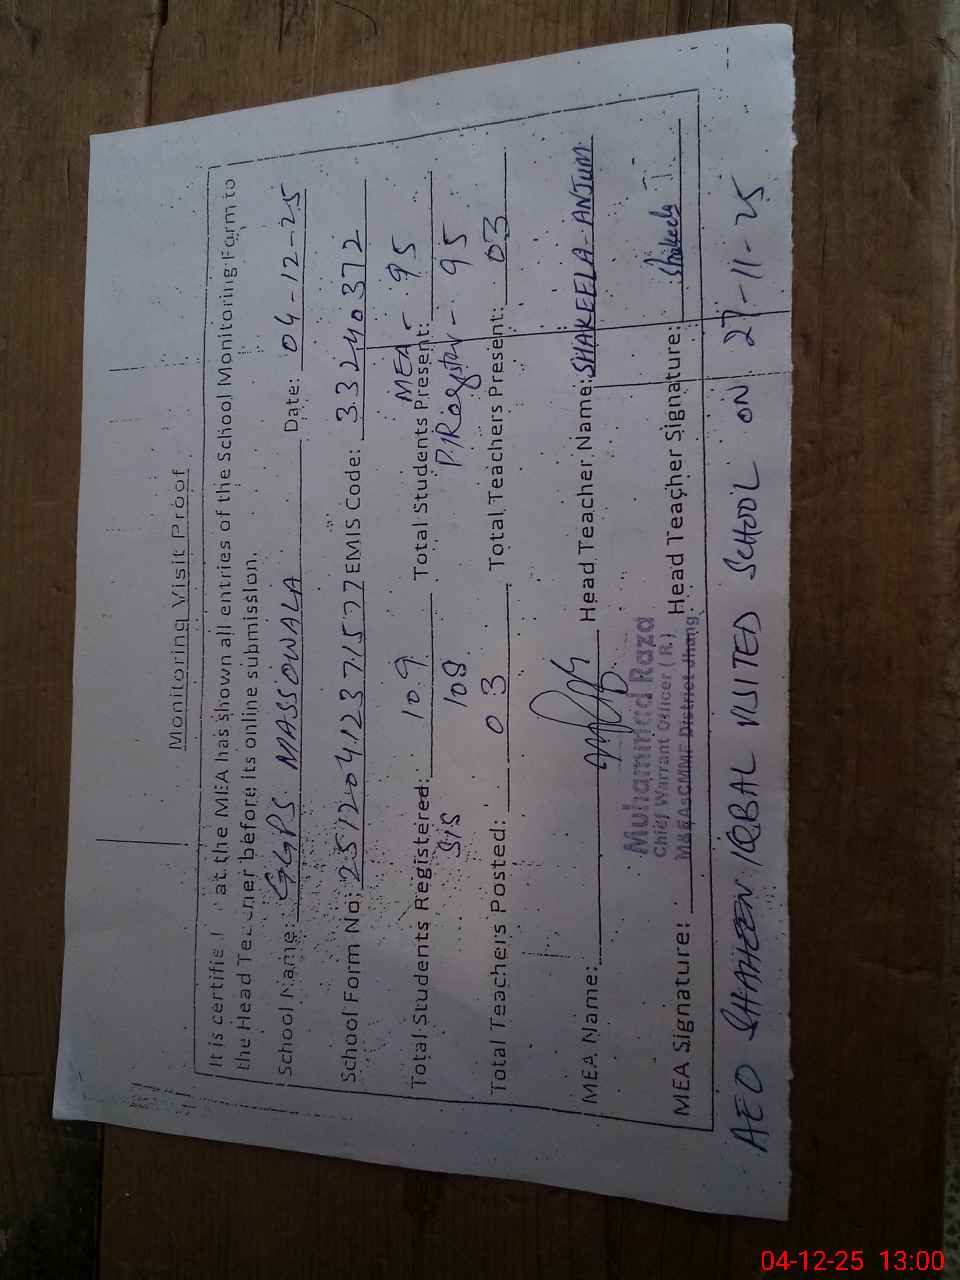 Monitoring Visit Proof
It is certifie at the MEA has shown all entries of the School Monitoring Form to
the Head Teacher before its online submission.
School Name: GGPS MASSOWALA Date: 04-12-25
School Form No: 251204123371577 EMIS Code: 33240372
MEA - 95
Total Students Registered: 109 Total Students Present:
SIS 108 P/Register - 95
Total Teachers Posted: 03 Total Teachers Present: 03
MEA Name: Head Teacher Name: SHAKEELA-ANJUM
Muhammad Raza
Chief Warrant Officer ( R )
MEA Signature: M&EAsCMMF District Jhang Head Teacher Signature: Shakeela
AEO SHAHEEN IQBAL VISITED SCHOOL ON 27-11-25
04-12-25 13:00